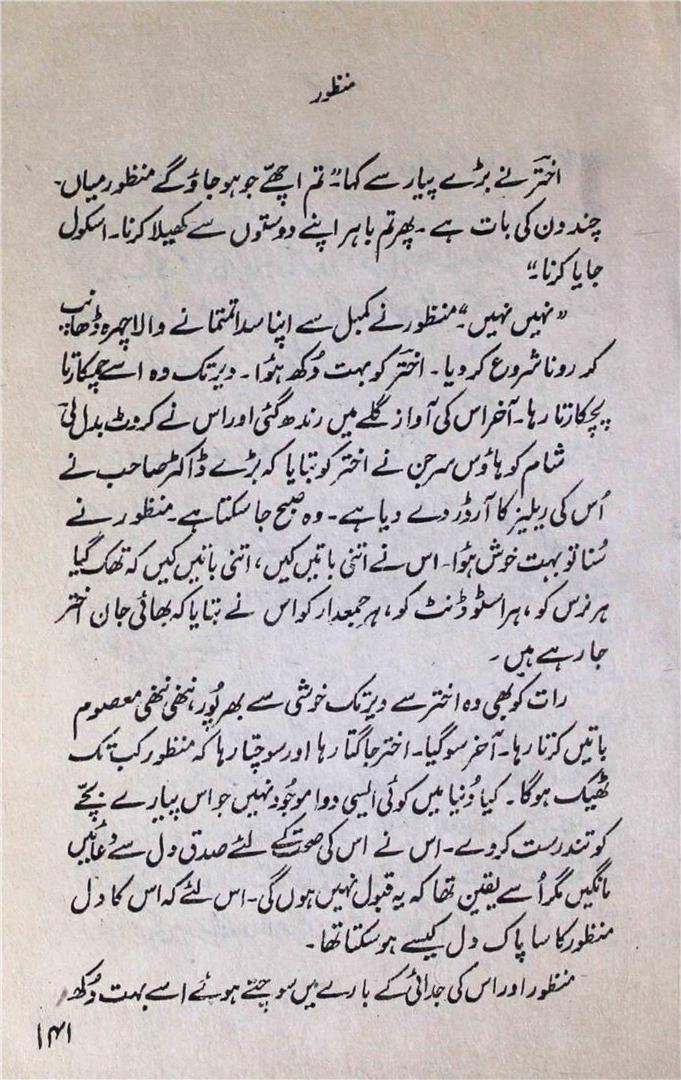 منظور
اختر نے بڑے پیار سے کہا۔ "تم اچھے جو ہو جاؤ گے منظور میاں۔
چند دن کی بات ہے۔ پھر تم باہر اپنے دوستوں سے کھیلا کرنا۔ اسکول
جایا کرنا۔"
"نہیں نہیں۔" منظور نے کمبل سے اپنا سدا تمتمانے والا چہرہ ڈھانپ
کر رونا شروع کر دیا۔ اختر کو بہت دُکھ ہؤا۔ دیر تک وہ اسے چمکارتا
پچکارتا رہا۔ آخر اس کی آواز گلے میں رندھ گئی اور اس نے کروٹ بدل لی۔
شام کو ہاؤس سرجن نے اختر کو بتایا کہ بڑے ڈاکٹر صاحب نے
اُس کی ریلیز کا آرڈر دے دیا ہے۔ وہ صبح جا سکتا ہے۔ منظور نے
سُنا تو بہت خوش ہؤا۔ اس نے اتنی باتیں کیں، اتنی باتیں کیں کہ تھک گیا
ہر نرس کو، ہر اسٹوڈنٹ کو، ہر جمعدار کو اس نے بتایا کہ بھائی جان اختر
جا رہے ہیں۔
رات کو بھی وہ اختر سے دیر تک خوشی سے بھرپُور، ننھی ننھی معصوم
باتیں کرتا رہا۔ آخر سو گیا۔ اختر جاگتا رہا اور سوچتا رہا کہ منظور کب تک
ٹھیک ہوگا۔ کیا دُنیا میں کوئی ایسی دوا موجُود نہیں جو اس پیارے بچّے
کو تندرست کر دے۔ اس نے اس کی صحت کے لئے صدق دل سے دُعائیں
مانگیں مگر اُسے یقین تھا کہ یہ قبول نہیں ہوں گی۔ اس لئے کہ اس کا دل
منظور کا سا پاک دل کیسے ہو سکتا تھا۔
منظور اور اس کی جدائی کے بارے میں سوچتے ہوئے اسے بہت دُکھ
۱۴۱